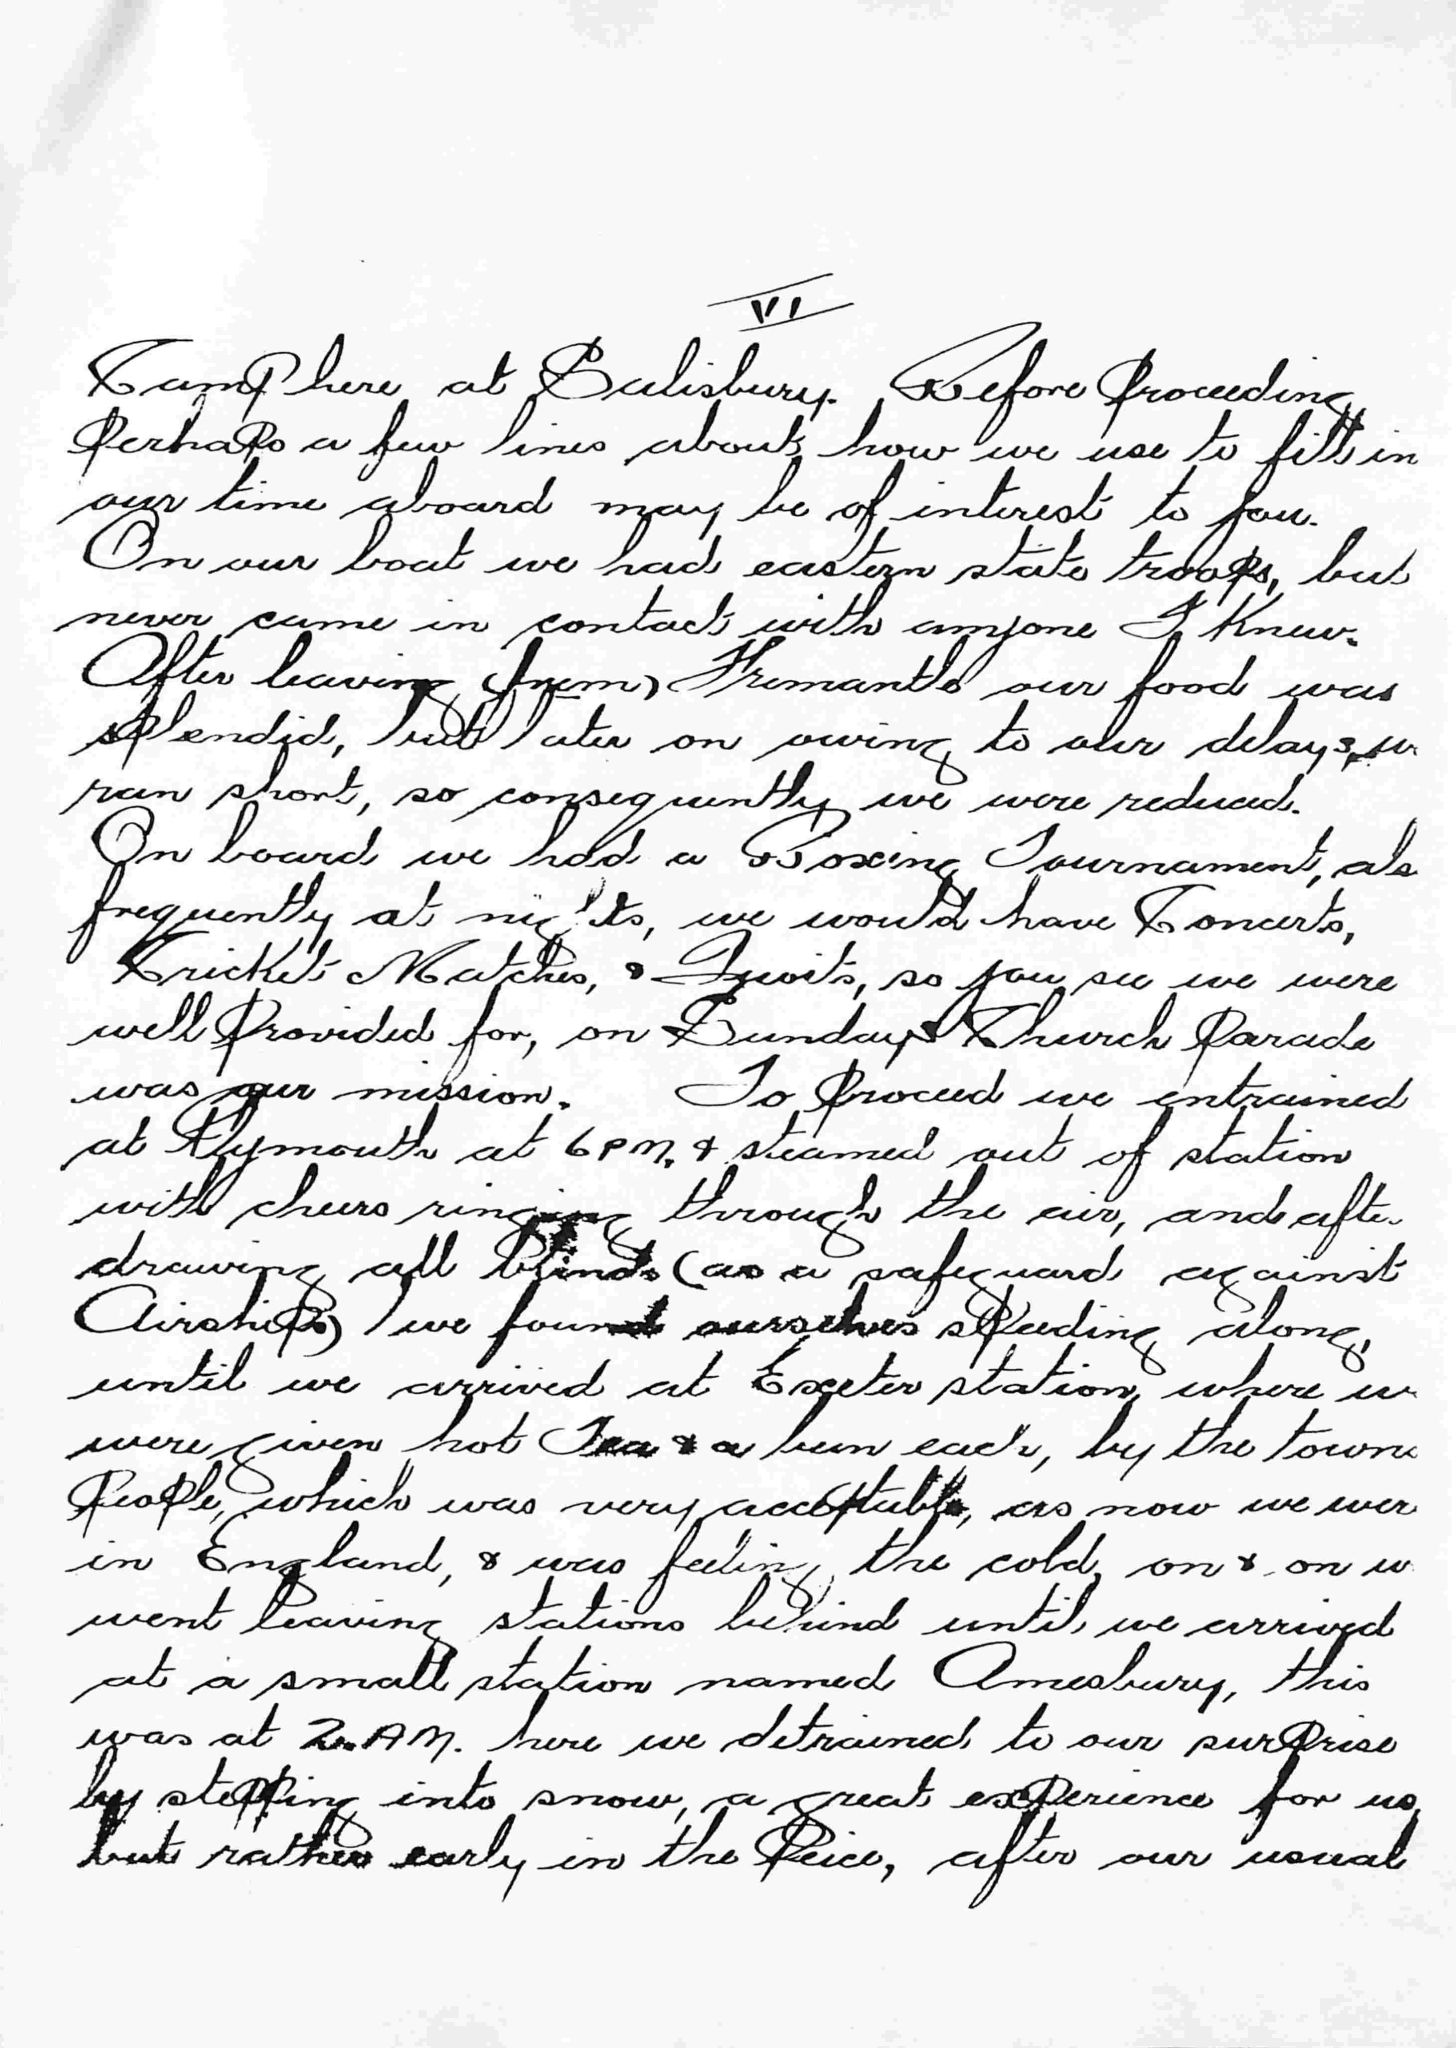 VI
Camp here at Salisbury. Before Proceeding
Perhaps a few lines about how we use to fill in
our time aboard may be of interest to you.
On our boat we had eastern state troops, but
never came in contact with anyone I knew.
After leaving (from) Fremantle our food was
splendid, but later on owing to our delays, w
ran short, so consequently we were reduced.
On board we had a Boxing Tournament, als
frequently at nights, we would have Concerts,
Cricket Matches, & Quoits, so you see we were
well Provided for, on Sundays Church Parade
was our mission. To Proceed we entrained
at Plymouth at 6 PM. & steamed out of station
with cheers ringing through the air, and afte
drawing all blinds (as a safeguard against
Airships) we found ourselves speeding along,
until we arrived at Exeter station, where w
were given hot Tea & a bun each, by the towns
People, which was very acceptable, as now we wer
in England, & was feeling the cold, on & on w
went leaving stations behind until we arrived
at a small station named Amesbury, this
was at 2. AM. here we detrained to our surprise
by stepping into snow, a great experience for us,
but rather early in the Peice, after our usual